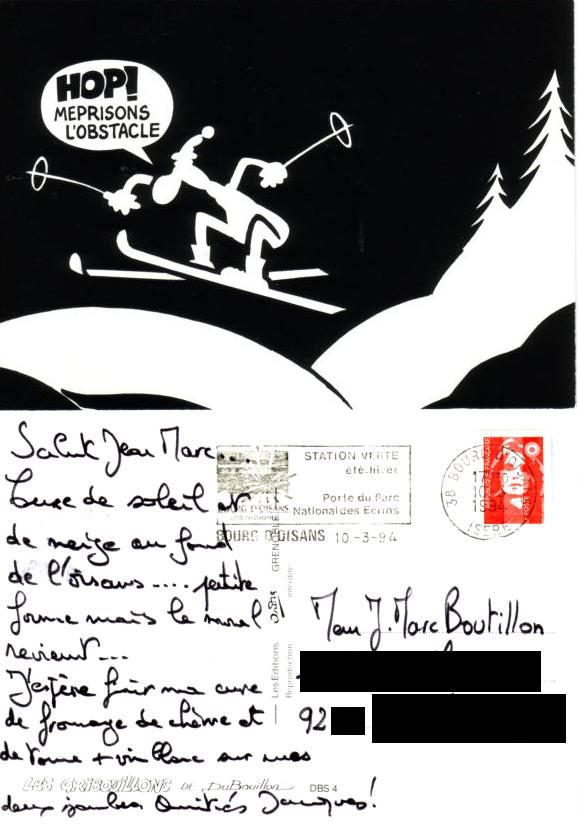 HOP!
MEPRISONS
L'OBSTACLE
Salut Jean Marc....
Cure de soleil et
de neige au fond
de l'oisans.... petite
forme mais le moral
revient...
J'espère finir ma cure
de fromage de chèvre et
de tome + vin blanc sur mes
deux jambes Amitiés Jacques!
STATION VERTE
été-hiver
Porte du Parc
National des Ecrins
BOURG D'OISANS
BOURG D'OISANS 10-3-94
38 BOURG D'OI
1994
ISERE
REPUBLIQUE FRANCAISE
Les Editions
GRENOBLE
Reproduction interdite
J. Marc Boutillon
92
LES GRIBOUILLONS DE DuBouillon DBS 4